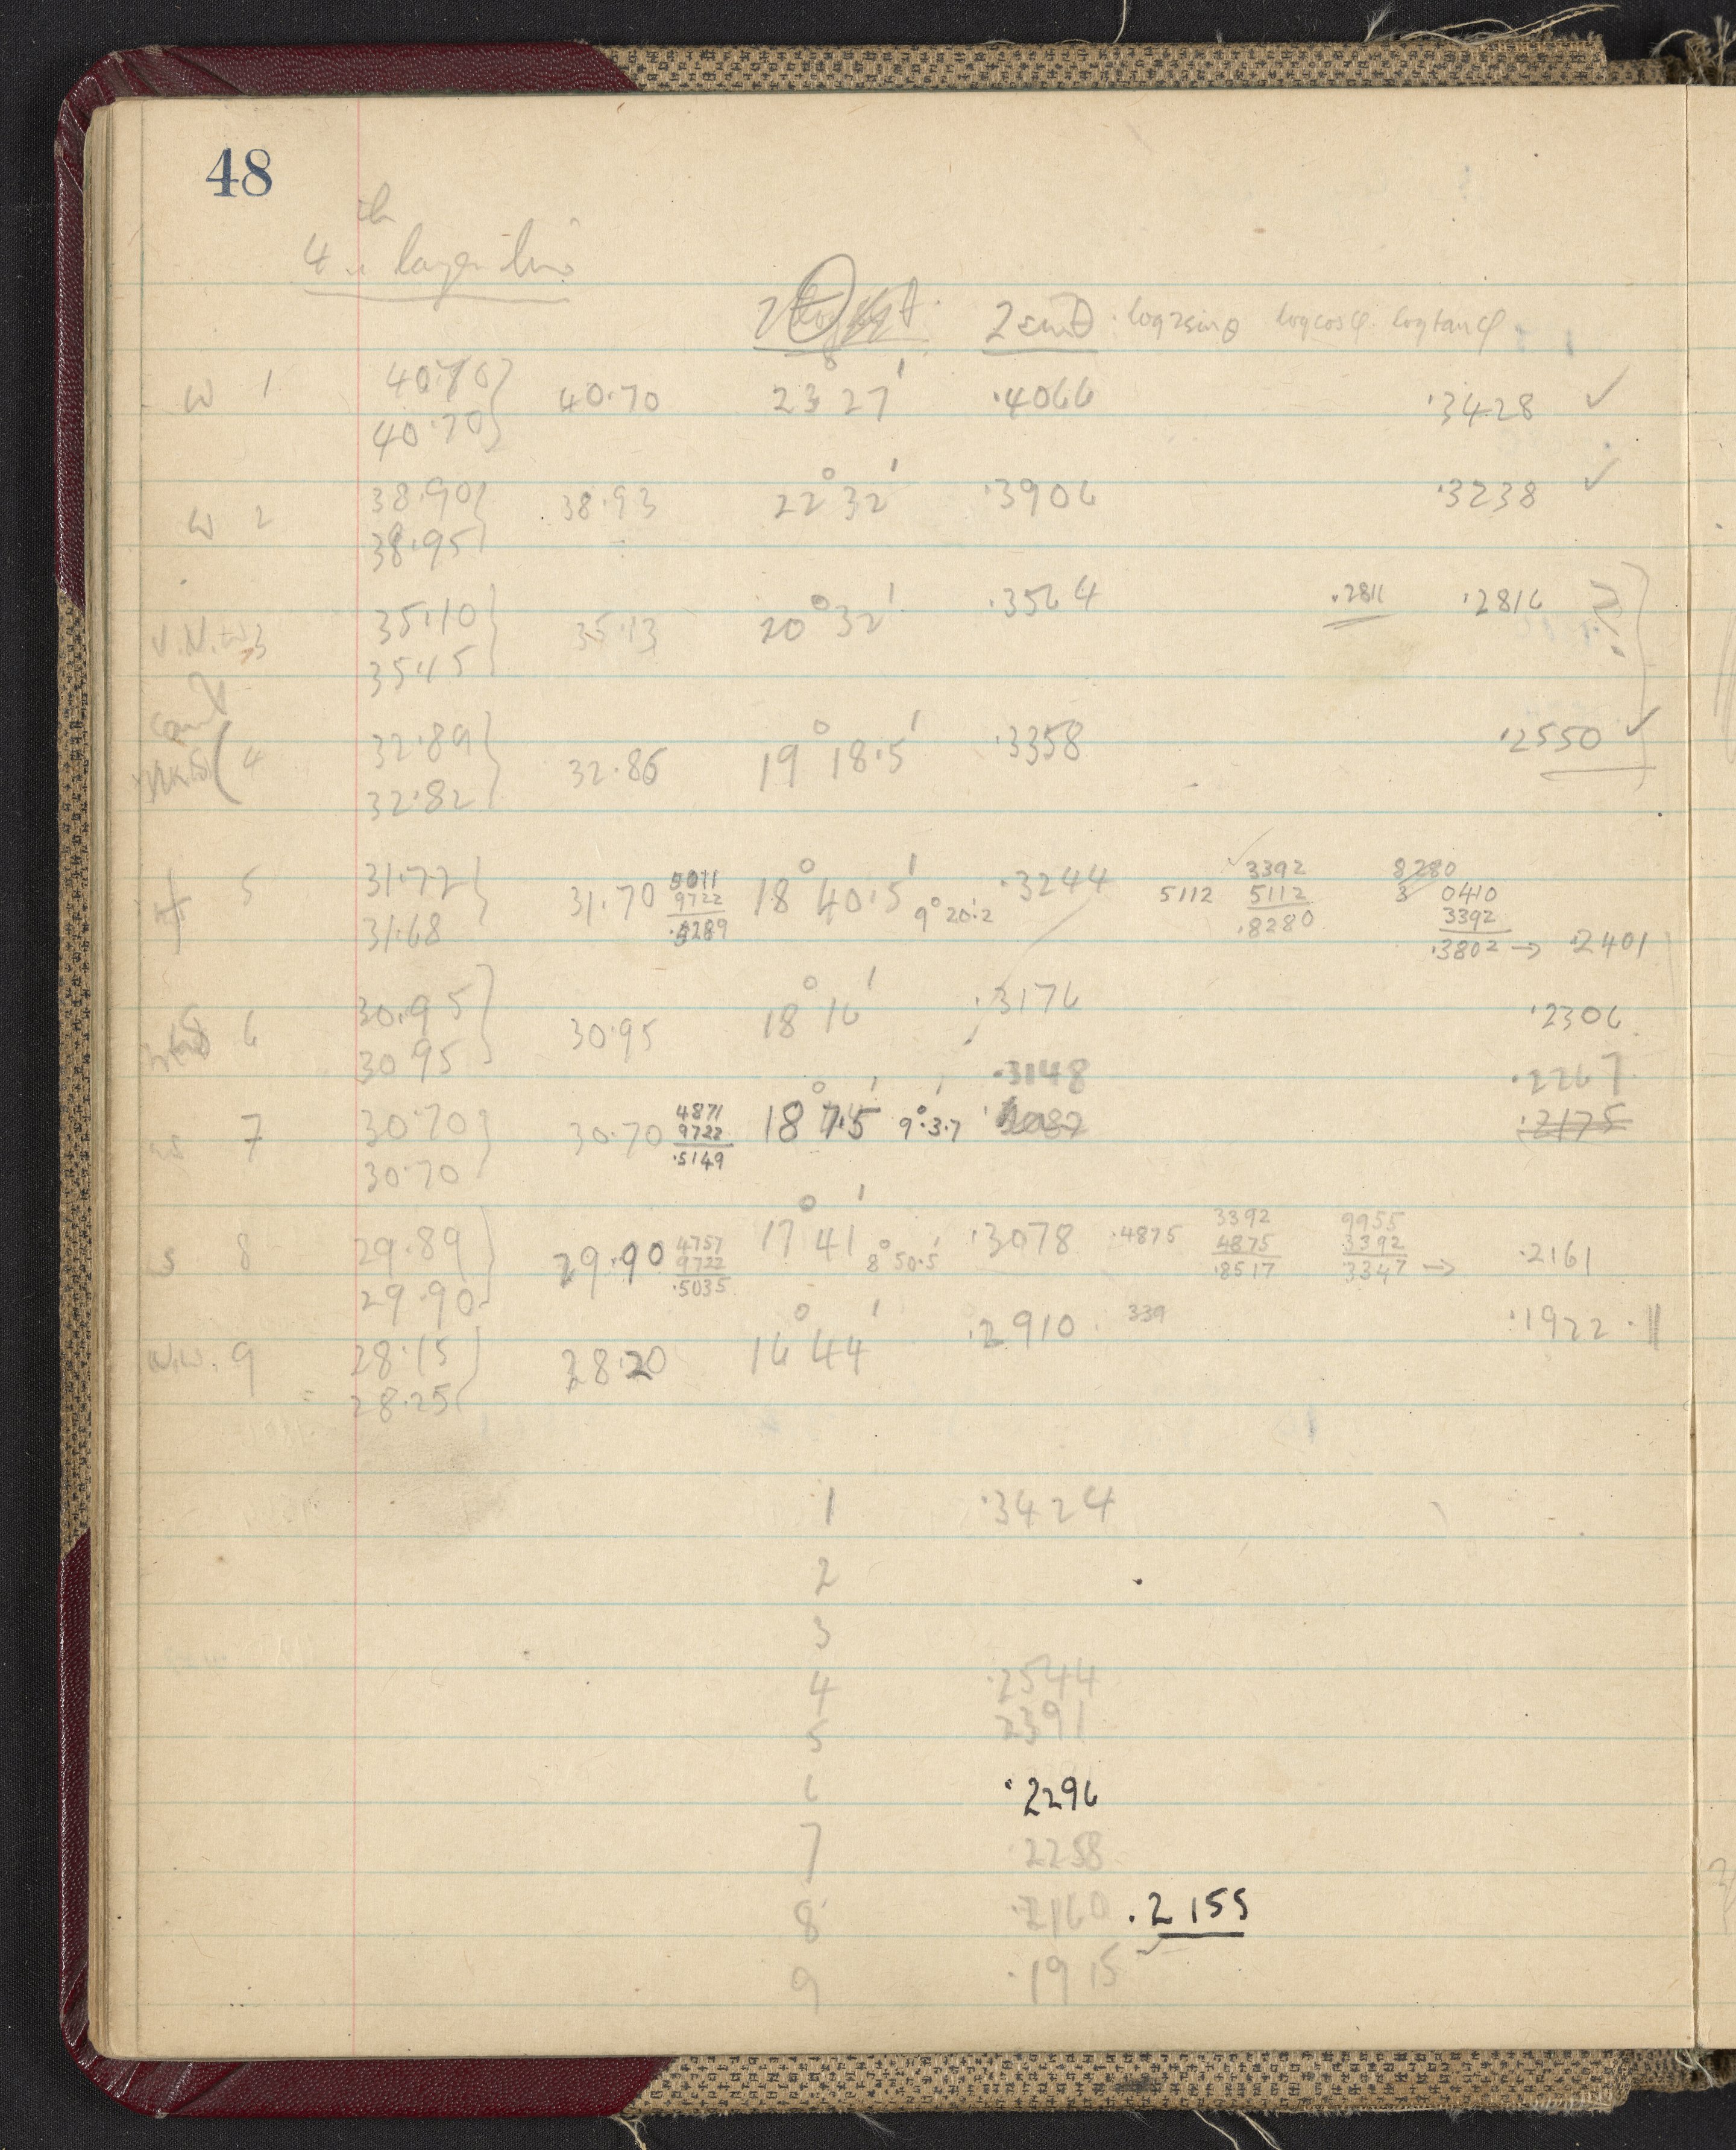 48
4th layer line
2θ 2 sinθ log 2sinθ log cosφ log tanφ
w 1 40.70 } 40.70 23° 27' .4066 .3428 ✓
40.70
w 2 38.90 } 38.93 22° 32' .3906 .3238 ✓
38.95
3 35.10 } 35.13 20° 32' .3564 .2811 .2816 ?
35.15
4 32.89 } 32.86 19° 18.5' .3358 .2550 ✓
32.82
5 31.72 } 31.70 18° 40.5' 9° 20.2' .3244
31.68
5011
9722
.5289
5112
3392
5112
.8280
8280
3 0410
3392
.3802 → .2401
6 30.95 } 30.95 18° 16' .3176 .2306
30.95
.3148 .2267
7 30.70 } 30.70 18° 7.5' 9° 3.7' .2175
30.70
4871
9722
.5149
s 8 29.89 } 29.90 17° 41' 8° 50.5' .3078 .4875
29.90
4757
9722
.5035
3392
4875
.8517
9955
3392
3347 → .2161
9 28.15 } 28.20 16° 44' .2910 339 .1922
28.25
1 .3424
2
3
4 .2544
5 2391
6 .2296
7 2258
8 .2160 .2155
9 .1915